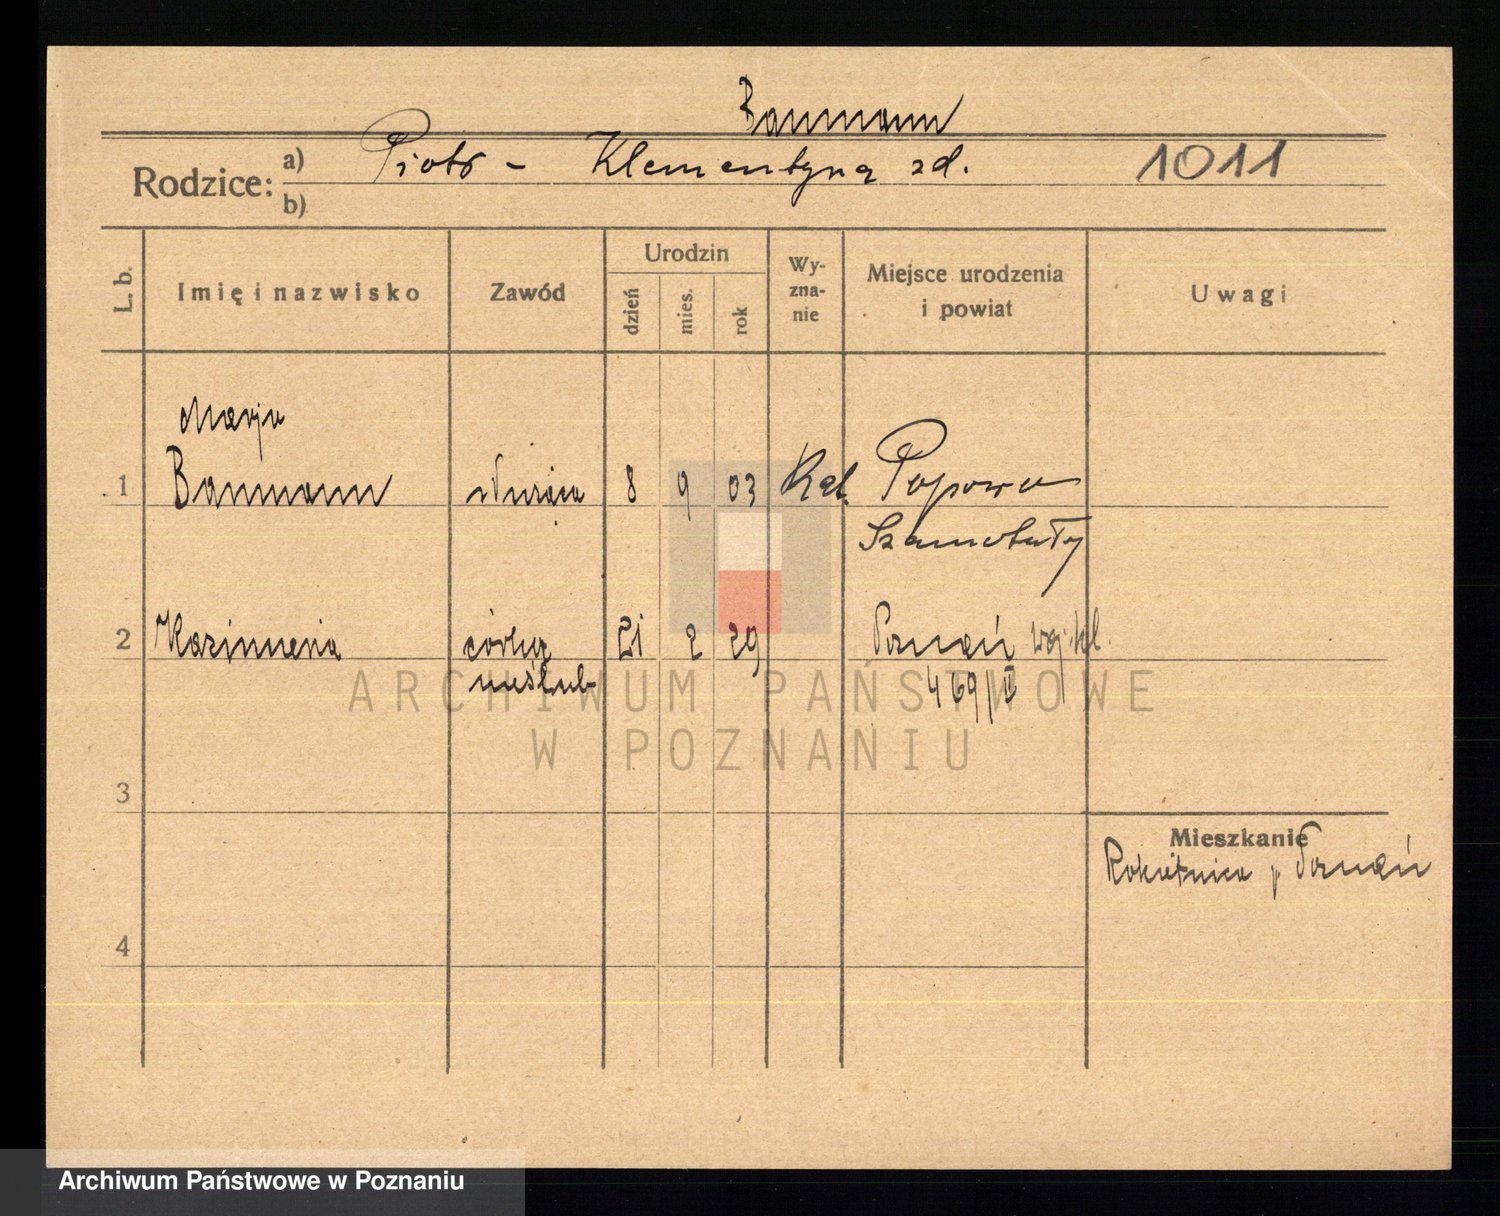 Baumann
Rodzice: a) Piotr - Klementyna zd. 1011
b)
L. b. Imię i nazwisko Zawód Urodzin dzień mies. rok Wy-zna-nie Miejsce urodzenia i powiat Uwagi
Marja
1 Baumann 8 9 03 Kat. Popowo
Szamotuły
2 Kazimiera córka 21 2 29 Poznań woj. kl.
nieślub 469/II
ARCHIWUM PAŃSTWOWE
W POZNANIU
3
Mieszkanie
Rokietnica p Poznań
4
Archiwum Państwowe w Poznaniu